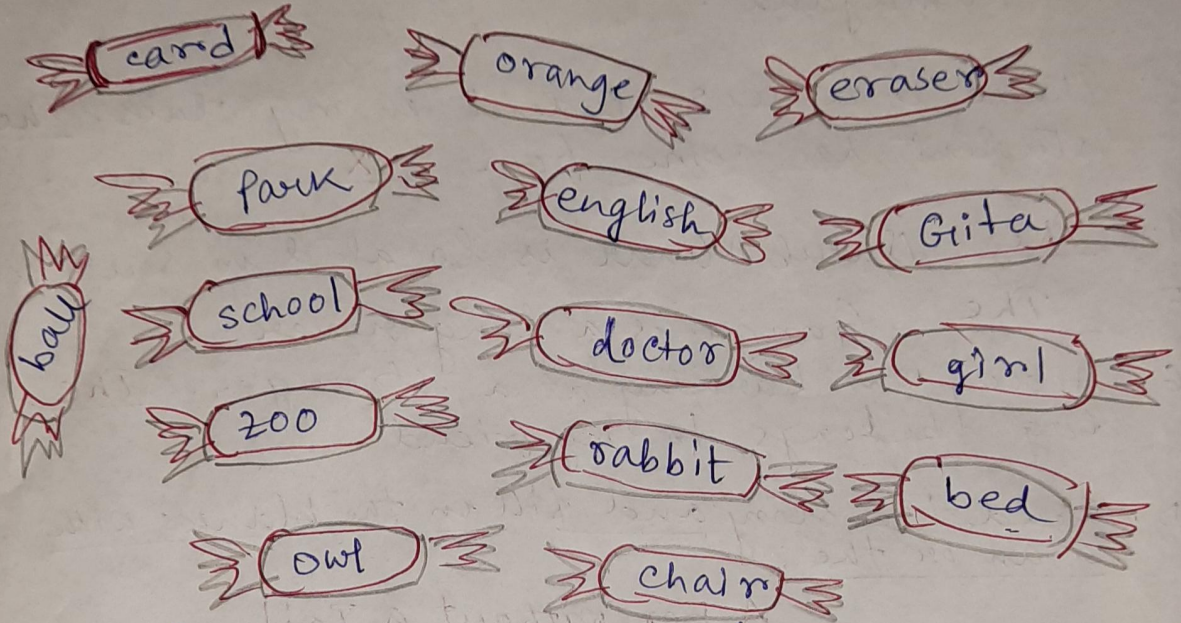 card
orange
eraser
Park
english
Gita
ball
school
doctor
girl
zoo
rabbit
bed
owl
chair